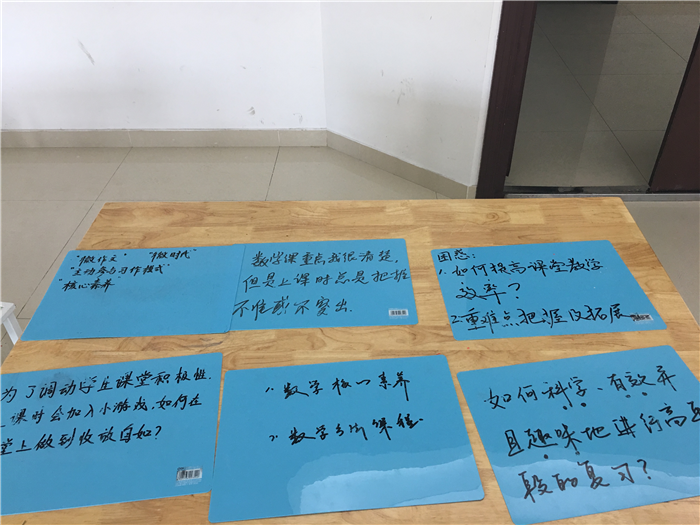 "微作文" "微时代"
"主动参与习作模式"
核心素养
数学课重点我很清楚,
但是上课时总是把握
不准或不突出.
困惑:
1. 如何提高课堂教学
效率?
2. 重难点把握及拓展
为了调动学生课堂积极性.
课时会加入小游戏,如何在
堂上做到收放自如?
1. 数学核心素养
2. 数学 课程
如何科学、有效并
且趣味地进行高
段的复习?